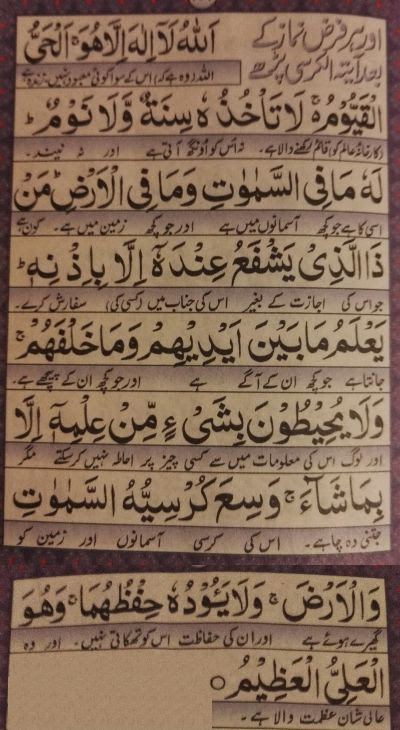 اور ہر فرض نماز کے
بعد آیۃ الکرسی پڑھے
اَللّٰهُ لَآ اِلٰهَ اِلَّا هُوَ ۚ اَلْحَیُّ
اللہ (وہ ہے کہ) اس کے سوا کوئی معبود نہیں زندہ ہے
الْقَیُّوْمُ ۚ لَا تَاْخُذُهٗ سِنَةٌ وَّلَا نَوْمٌ ؕ
(کارخانۂ عالم کو) قائم رکھنے والا ہے۔ نہ اُس کو اُونگھ آتی ہے اور نہ نیند۔
لَهٗ مَا فِی السَّمٰوٰتِ وَمَا فِی الْاَرْضِ ؕ مَنْ
اسی کا ہے جو کچھ آسمانوں میں ہے اور جو کچھ زمین میں ہے۔ کون ہے
ذَا الَّذِیْ یَشْفَعُ عِنْدَهٗٓ اِلَّا بِاِذْنِهٖ ؕ
جو اس کی اجازت کے بغیر اس کی جناب میں (کسی کی) سفارش کرے۔
یَعْلَمُ مَا بَیْنَ اَیْدِیْهِمْ وَمَا خَلْفَهُمْ ۚ
جانتا ہے جو کچھ ان کے آگے ہے اور جو کچھ ان کے پیچھے ہے۔
وَلَا یُحِیْطُوْنَ بِشَیْءٍ مِّنْ عِلْمِهٖٓ اِلَّا
اور لوگ اس کی معلومات میں سے کسی چیز پر احاطہ نہیں کرسکتے مگر
بِمَا شَآءَ ۚ وَسِعَ كُرْسِیُّهُ السَّمٰوٰتِ
جتنی وہ چاہے۔ اس کی کرسی آسمانوں اور زمین کو
وَالْاَرْضَ ۚ وَلَا یَـُٔوْدُهٗ حِفْظُهُمَا ۚ وَهُوَ
گھیرے ہوئے ہے اور ان کی حفاظت اس کو تھکاتی نہیں۔ اور وہ
الْعَلِیُّ الْعَظِیْمُ ○
عالی شان عظمت والا ہے۔